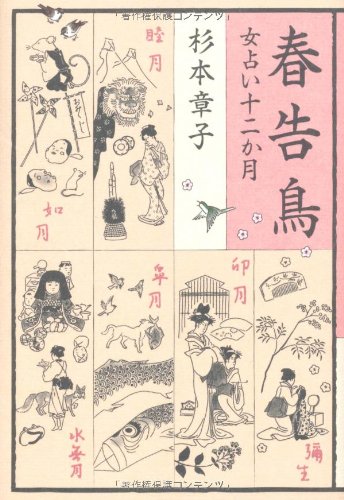 「著作権保護コンテンツ」
春告鳥
女占い十二か月
杉本章子
睦月
如月
彌生
卯月
皐月
水無月
「著作権保護コンテンツ」